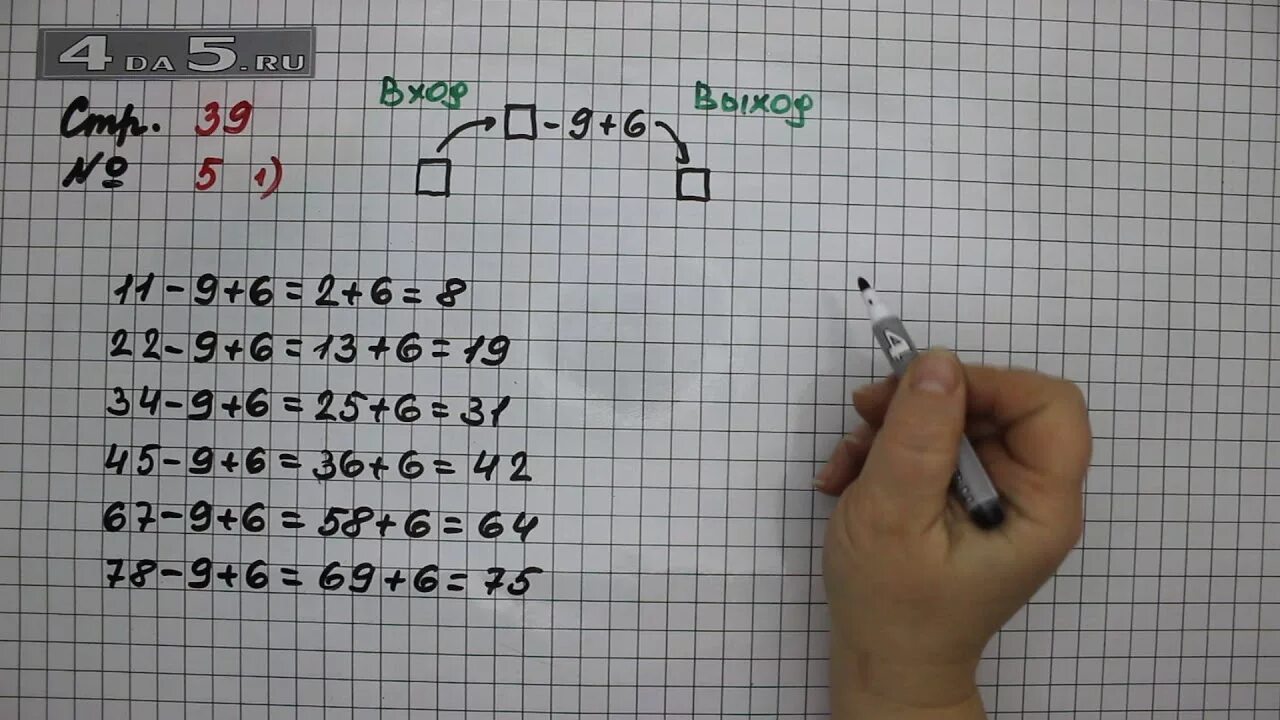 4DA5.RU
Стр. 39
№ 5 1)
Вход
□ - 9 + 6
Выход
11 - 9 + 6 = 2 + 6 = 8
22 - 9 + 6 = 13 + 6 = 19
34 - 9 + 6 = 25 + 6 = 31
45 - 9 + 6 = 36 + 6 = 42
67 - 9 + 6 = 58 + 6 = 64
78 - 9 + 6 = 69 + 6 = 75